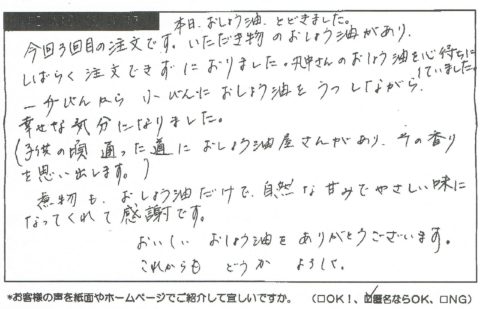 本日、おしょう油、とどきました。
今回3回目の注文です。いただき物のおしょう油があり、
しばらく注文できずにおりました。丸中さんのおしょう油を心待ちに
していました。
一升びんから小びんにおしょう油をうつしながら、
幸せな気分になりました。
(子供の頃通った道におしょう油屋さんがあり、その香り
を思い出します。)
煮物も、おしょう油だけで、自然な甘みでやさしい味に
なってくれて感謝です。
おいしいおしょう油をありがとうございます。
これからもどうかよろしく。
*お客様の声を紙面やホームページでご紹介して宜しいですか。 (□OK!、☑匿名ならOK、□NG)